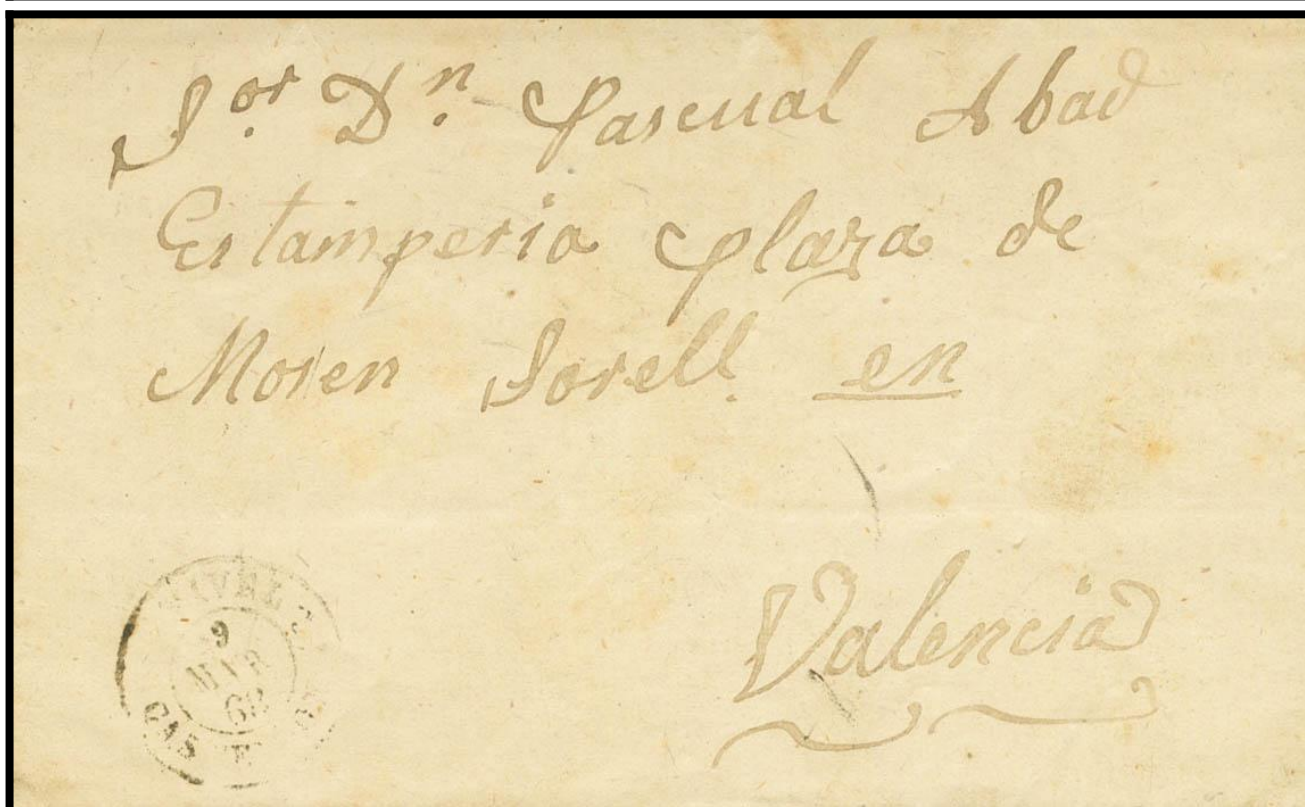 Sor. Dn. Pascual Abad
Estamperia plaza de
Mosen Sorell. en
Valencia
9
MAR